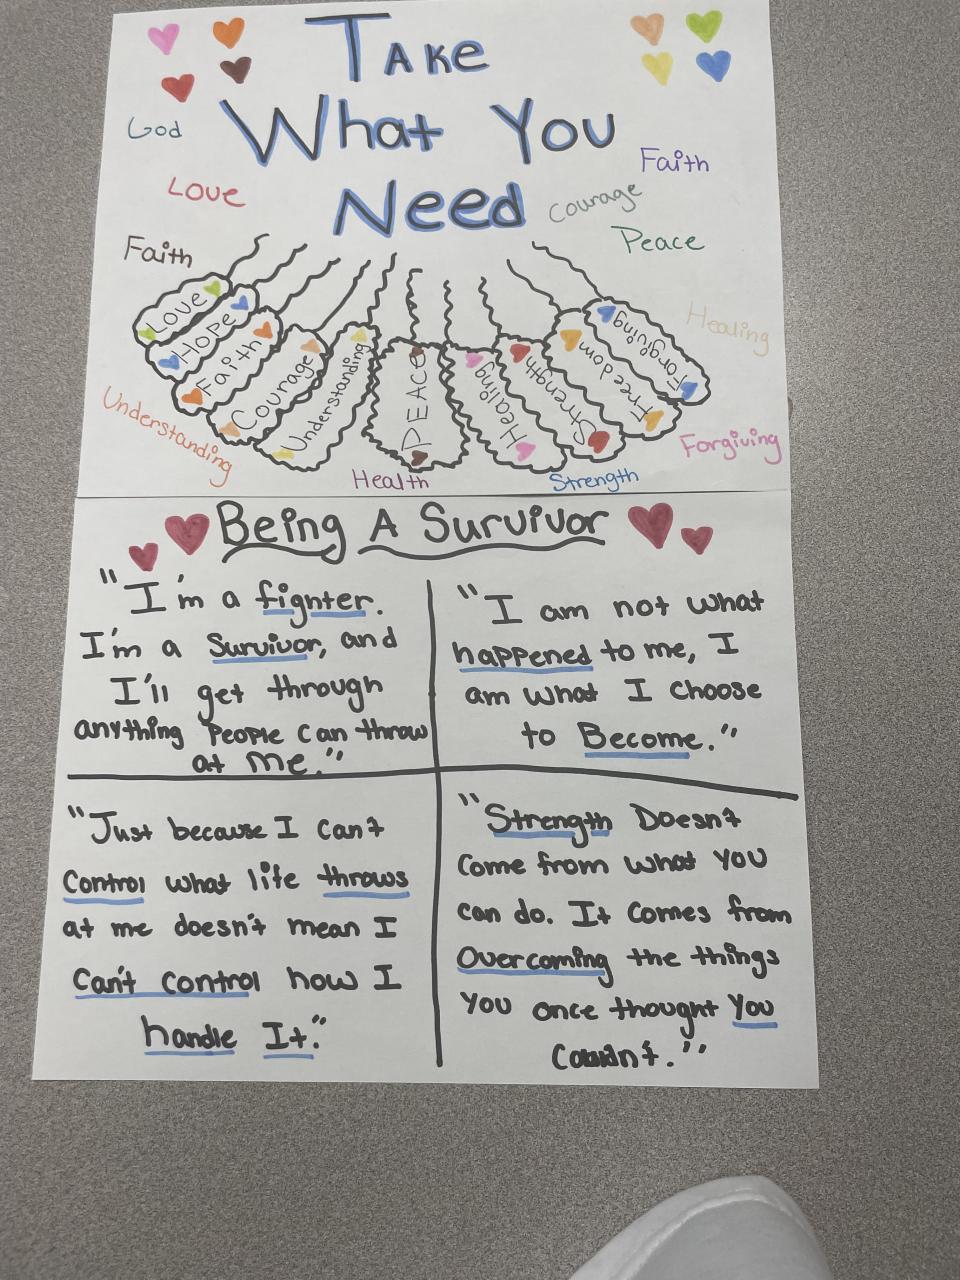 Take
What You
Need
God
Love
Faith
Faith
Courage
Peace
Healing
Love
Hope
Faith
Courage
Understanding
PEACE
Healing
Strength
Freedom
Forgiving
Understanding
Health
Strength
Forgiving
Being A Survivor
"I'm a fighter.
I'm a Survivor, and
I'll get through
anything People Can throw
at me."
"I am not what
happened to me, I
am what I choose
to Become."
"Just because I can't
Control what life throws
at me doesn't mean I
Can't control how I
handle It."
"Strength Doesn't
Come from what you
can do. It Comes from
Overcoming the things
you once thought You
Couldn't."